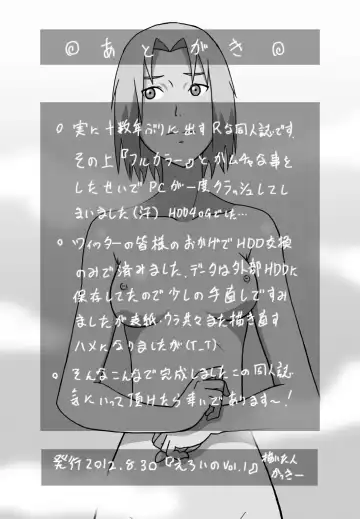 ◎ あとがき ◎
○ 実に十数年ぶりに出すR指同人誌です。
その上『フルカラー』とかムチャな事を
したせいでPCが一度クラッシュしてし
まいました(汗) HDD4つGでした…
○ ツイッターの皆様のおかげでHDD交換
のみで済みました、データは外部HDDに
保存してたので少しの手直しですみ
ましたが表紙・ウラ共もまた描き直す
ハメになりましたが(T_T)
○ そんなこんなで完成しましたこの同人誌
気にいって頂けたら幸いであります〜!
発行 2012.8.30 『えろいのvol.1』
描いた人
かっきー